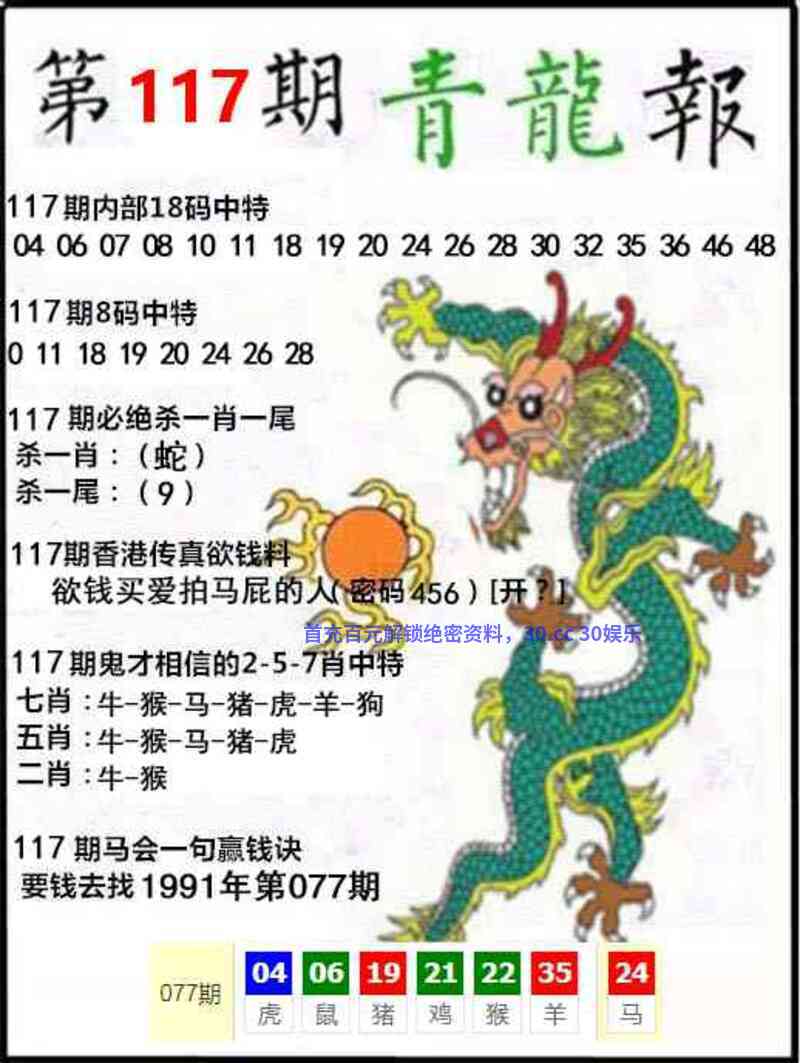 第117期青龍報
117期内部18码中特
04 06 07 08 10 11 18 19 20 24 26 28 30 32 35 36 46 48
117期8码中特
0 11 18 19 20 24 26 28
117期必绝杀一肖一尾
杀一肖：（蛇）
杀一尾：（9）
117期香港传真欲钱料
欲钱买爱拍马屁的人（密码456）[开？]
首充百元解锁绝密资料，30.cc 30娱乐
117期鬼才相信的2-5-7肖中特
七肖：牛-猴-马-猪-虎-羊-狗
五肖：牛-猴-马-猪-虎
二肖：牛-猴
117期马会一句赢钱诀
要钱去找1991年第077期
077期 04 06 19 21 22 35 24
虎 鼠 猪 鸡 猴 羊 马